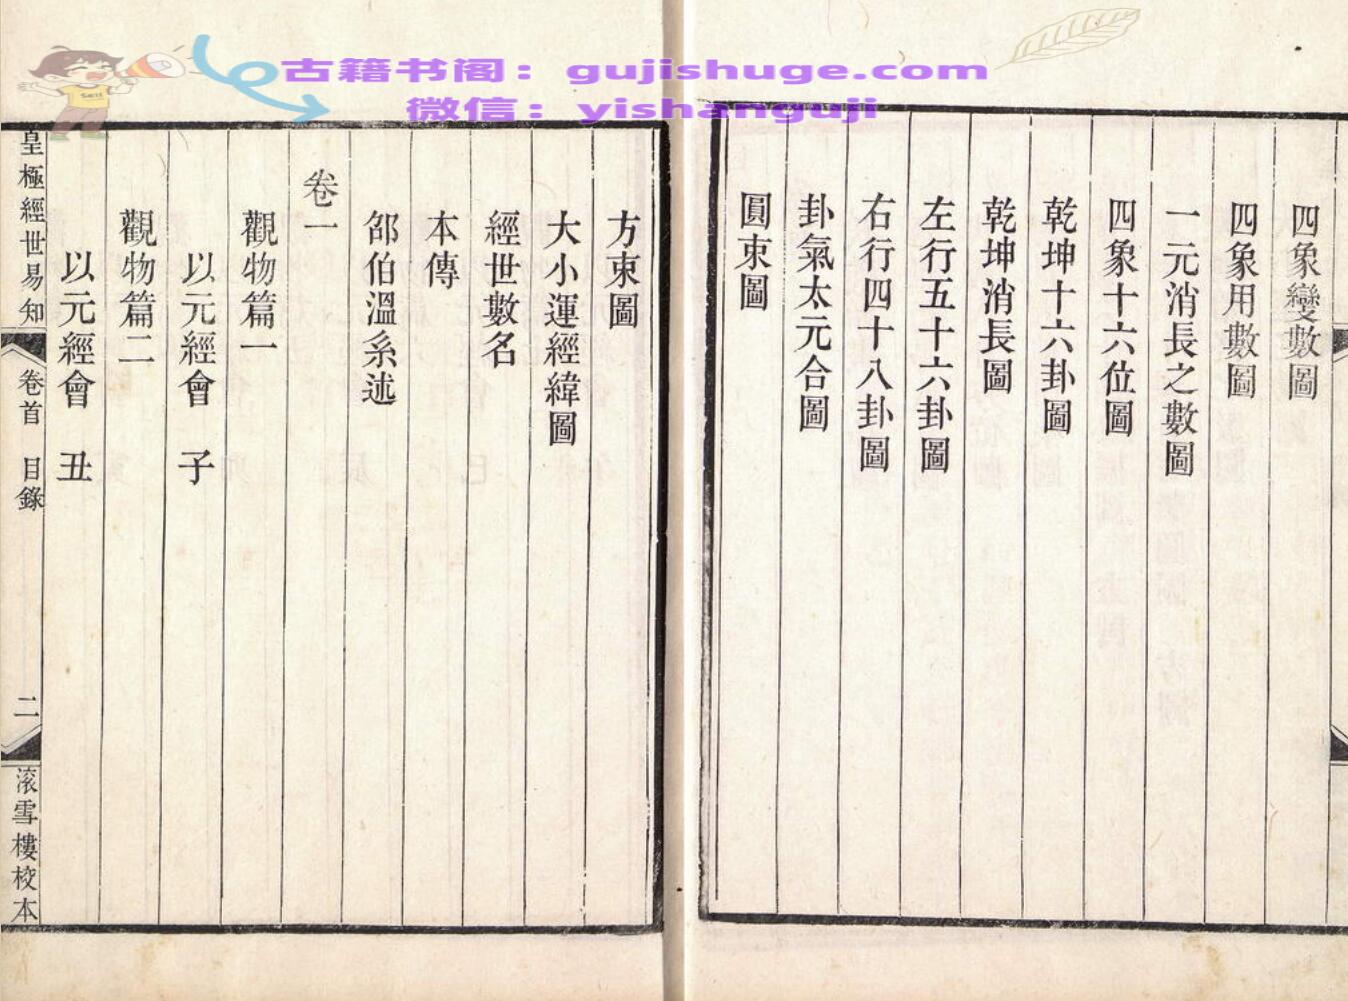 古籍书阁：gujishuge.com
微信：yishanguji
Sell
四象變數圖
四象用數圖
一元消長之數圖
四象十六位圖
乾坤十六卦圖
乾坤消長圖
左行五十六卦圖
右行四十八卦圖
卦氣太元合圖
圓束圖
方束圖
大小運經緯圖
經世數名
本傳
邵伯溫系述
卷一
觀物篇一
以元經會　子
觀物篇二
以元經會　丑
皇極經世易知
卷首　目錄
二
滚雪樓校本